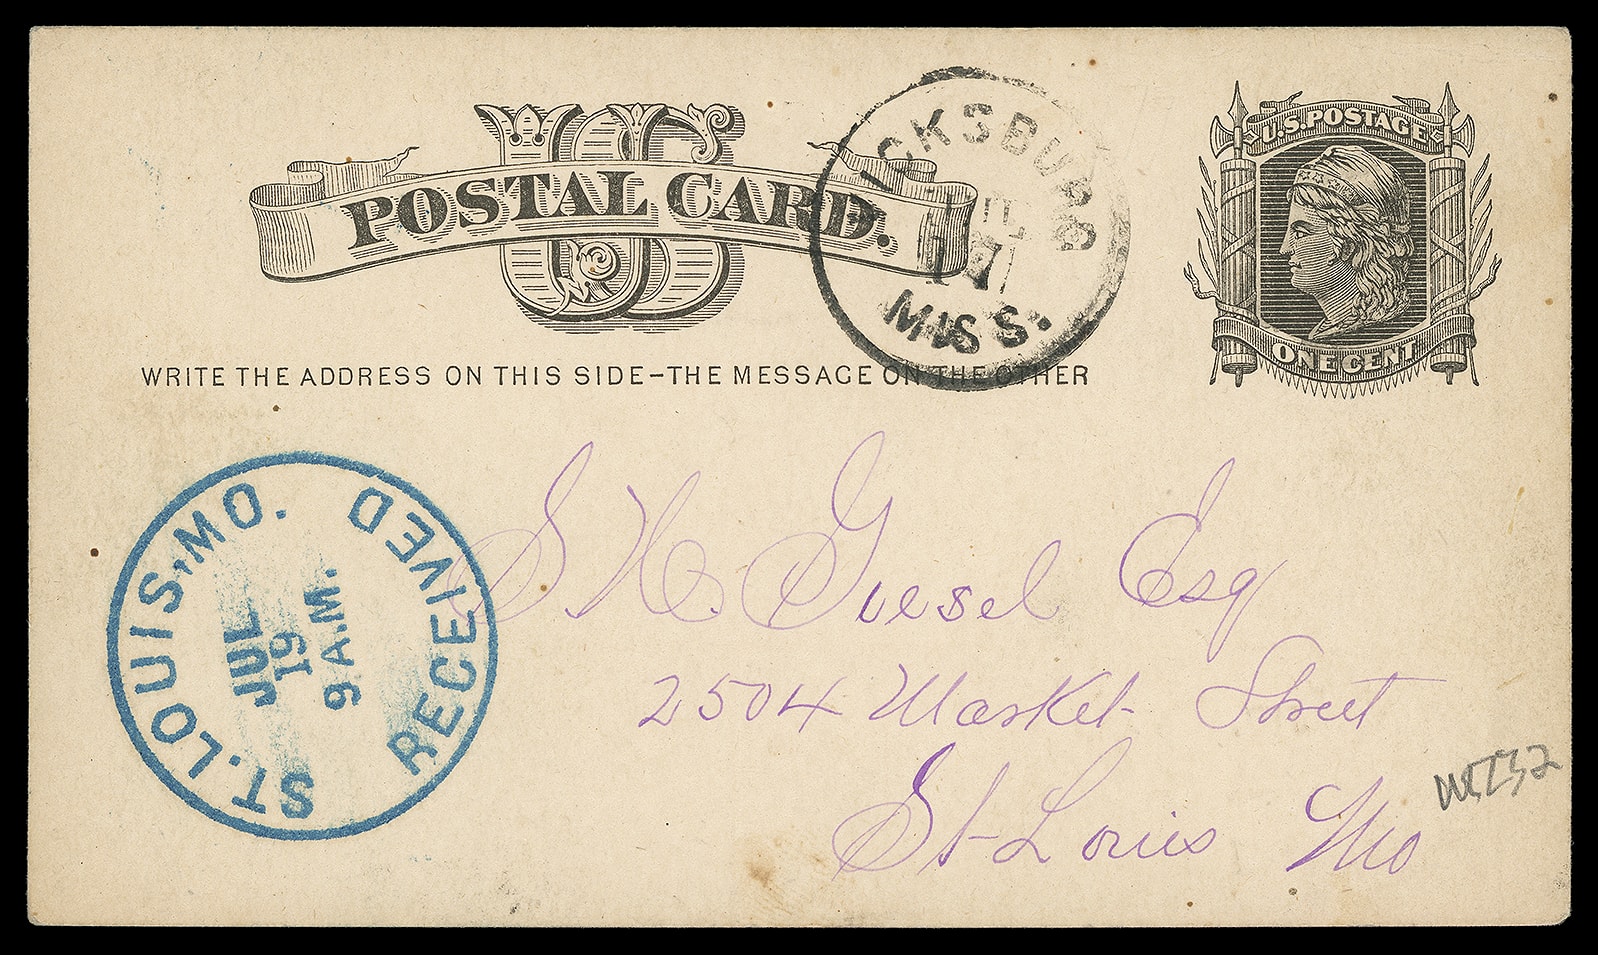 US
POSTAL CARD.
VICKSBURG
17
MISS.
U.S. POSTAGE
ONE CENT
WRITE THE ADDRESS ON THIS SIDE-THE MESSAGE ON THE OTHER
ST. LOUIS, MO.
JUL
19
9 A.M.
RECEIVED
S. H. Guesel Esq
2504 Market Street
St-Louis Mo